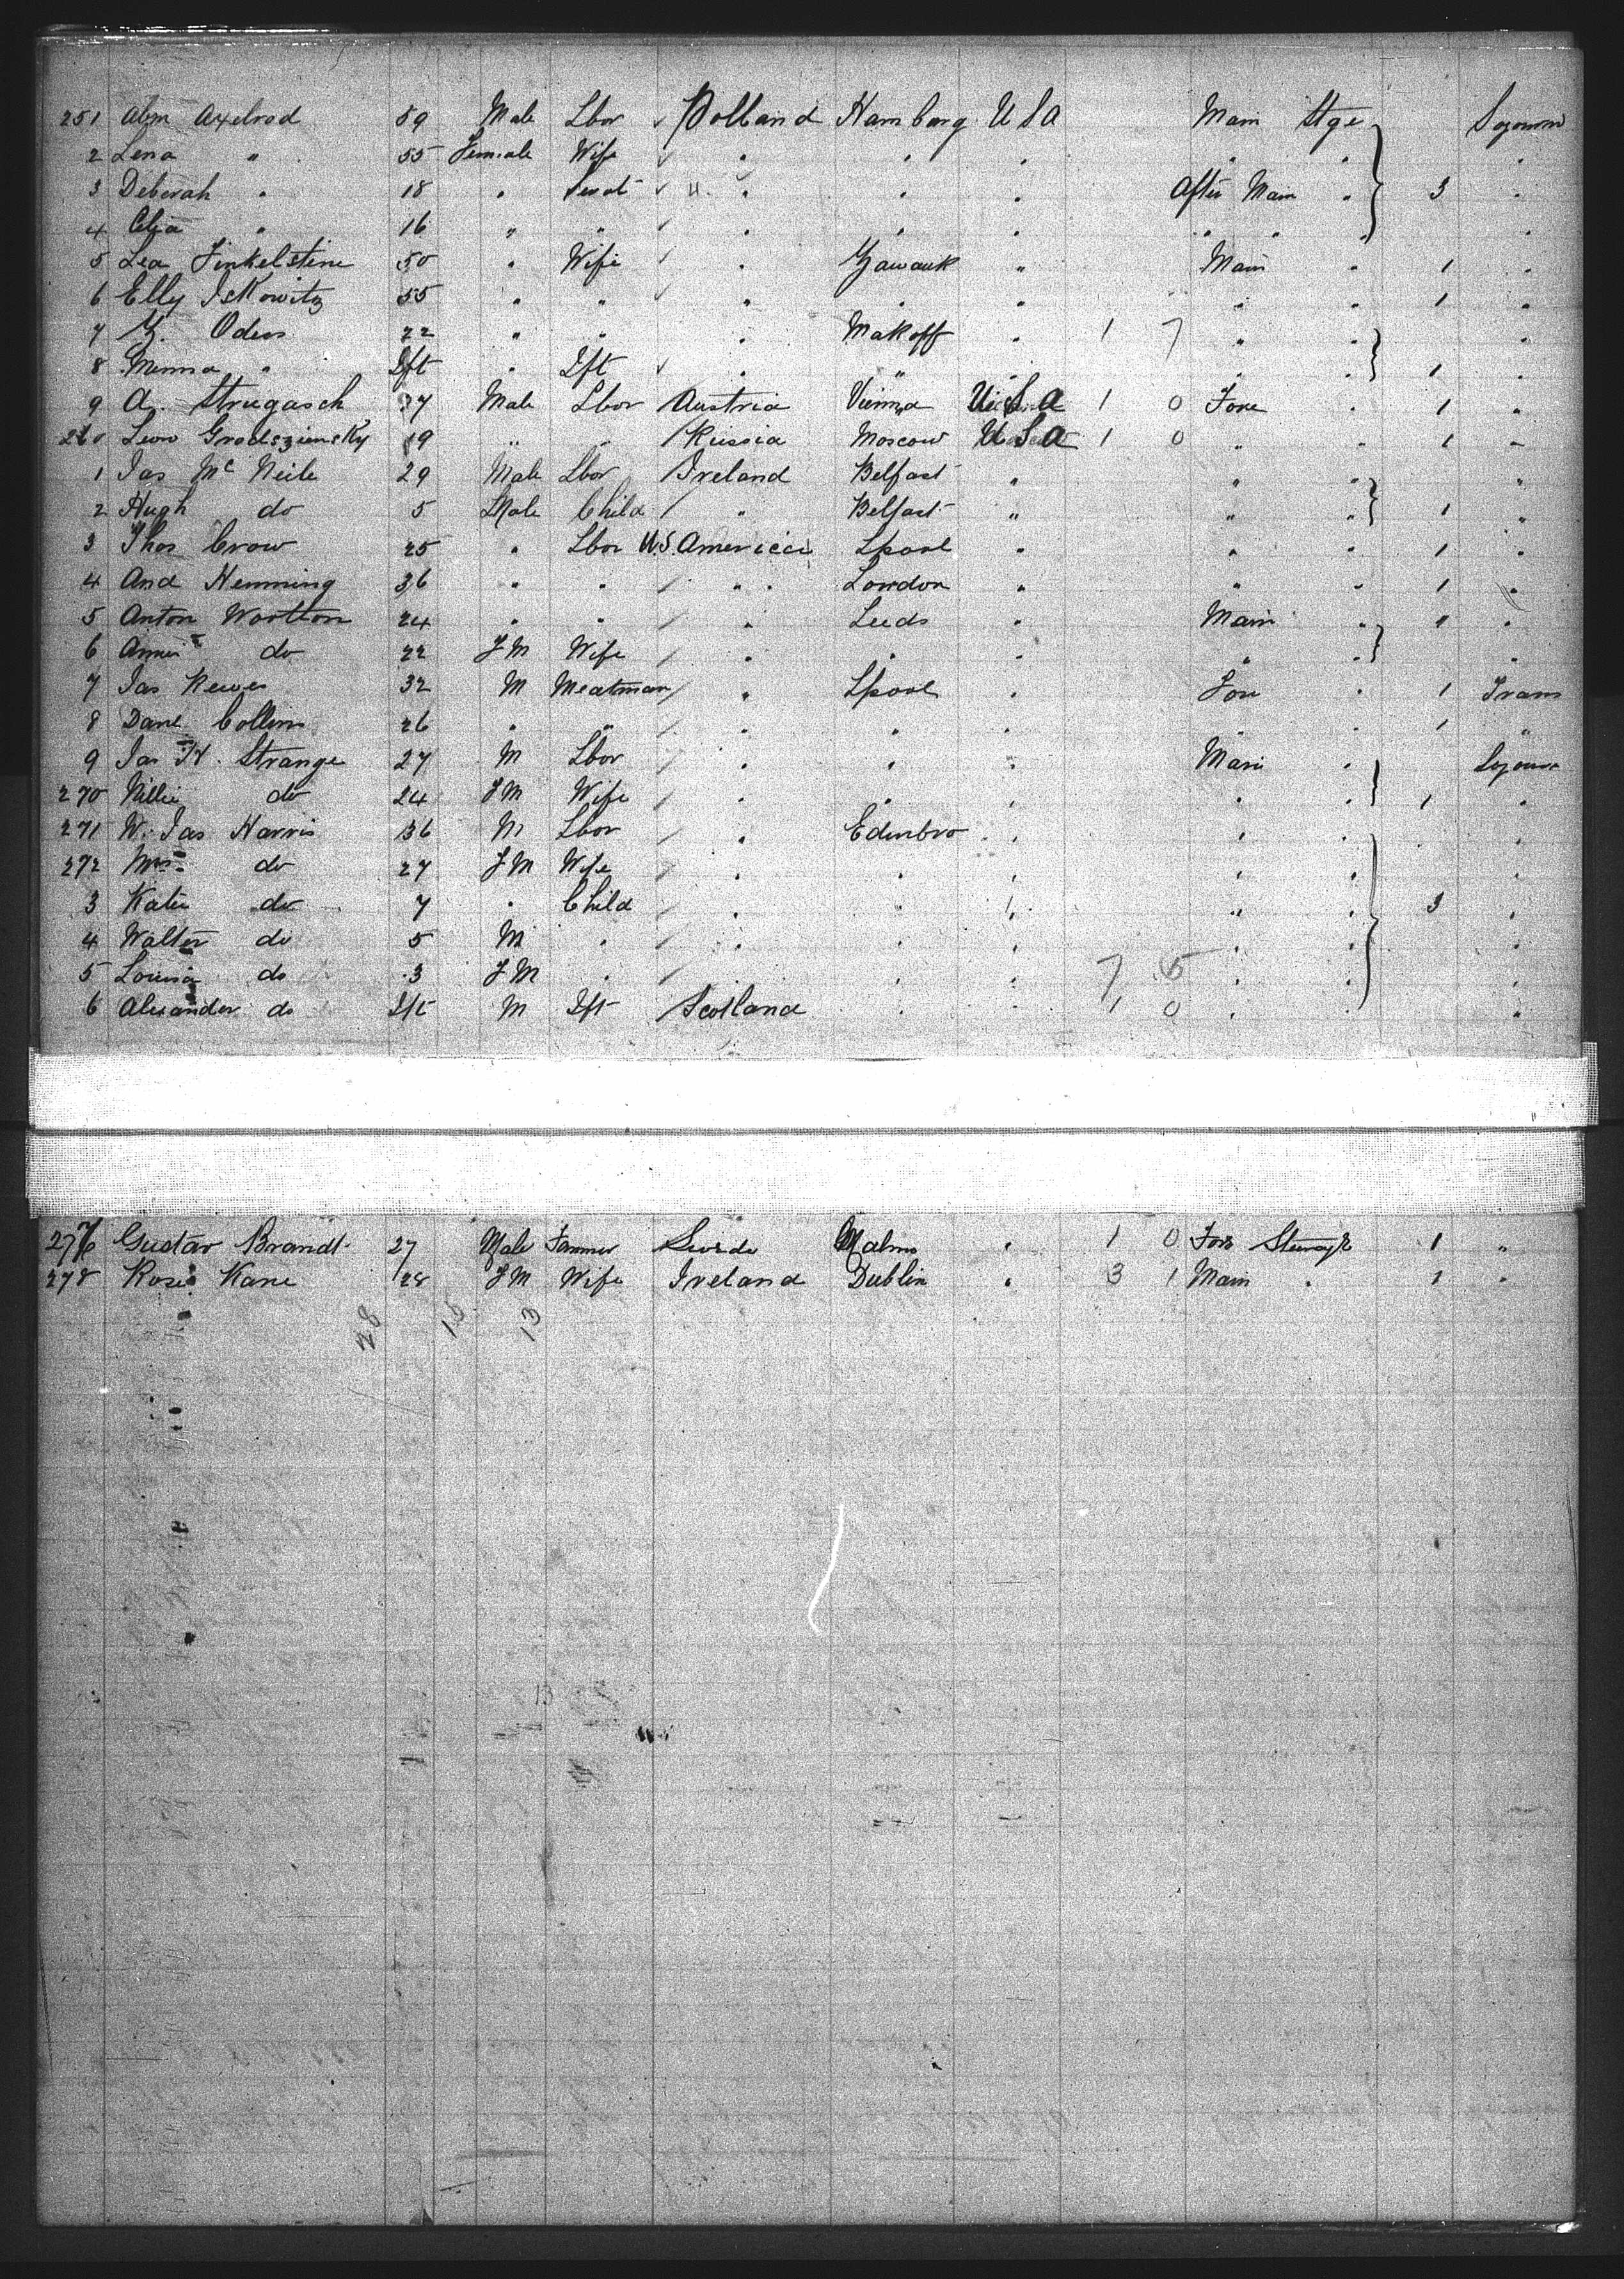 251 Abm Axelrod 59 Male Lbor ✓ Polland Hamburg U S A Main Stge Sojourn
2 Lena " 55 Female Wife ✓ " " " " " "
3 Deborah " 18 " Servt ✓ " " " " After Main " 3 "
4 Celia " 16 " " ✓ " " " " " " "
5 Lea Finkelstine 50 " Wife ✓ " " Main " 1 "
6 Elly Iskowitz 55 " " ✓ " " " " " 1 "
7 Oders 22 " " " Makoff " 1 7 " "
8 Menna " Ift " Ift ✓ " " " " " 1 "
9 A. Strugasch 37 Male Lbor Austria Vienna U S A 1 0 Fore " 1 "
260 Leon Grodsziensky 19 " " Russia Moscow U S A 1 0 " " 1 "
1 Jas Mc Neile 29 Male Lbor Ireland Belfast " " " "
2 Hugh do 5 Male Child / " Belfast " " " 1 "
3 Thos Crow 25 " Lbor U.S. America Lpool " " " 1 "
4 And Hemming 36 " " / " " London " " " 1 "
5 Anton Wootton 24 " " / " Leeds " Main " " "
6 Annie do 22 F M Wife / " " " " " "
7 Jas 32 M Meatman / " Lpool " Fore " 1 Trans
8 Danl Collins 26 " " / " " " " " 1 "
9 Jas H. Strange 27 M Lbor / " " " Main " Sojourn
270 Nillie do 24 F M Wife / " " " " " 1 "
271 W. Jas Harris 36 M Lbor / " Edinbro " " " "
272 Mrs do 27 F M Wife / " " " " " "
3 Katie do 7 " Child / " " " " " 3 "
4 Walter do 5 M " / " " " " " "
5 Louisa do 3 F M " / " " " 7 5 " " "
6 Alexander do Ift M Ift Scotland " " 1 0 " " "
277 Gustav Brandt 27 Male Farmer Swede Malmo " 1 0 Fore Steerage 1 "
278 Rose Kane 28 F M Wife Ireland Dublin " 3 1 Main " 1 "
28 15 13
13